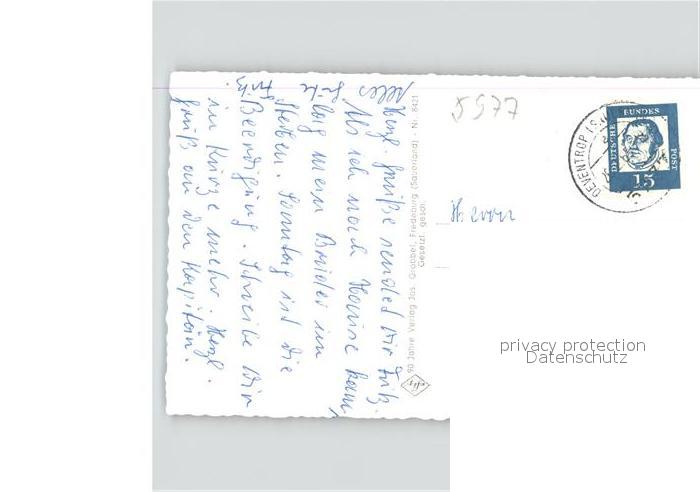 Herzl. Grüße sendet dir Fritz.
Als ich nach Hause kam,
lag mein Bruder im
Sterben. Sonntag ist die
Beerdigung. Schreibe Dir
in Kürze mehr. Herzl.
Gruß an den Kapitän.
60 Jahre Verlag Jos. Grobbel, Fredeburg (Sauerland) - Nr. 8421
Gesetzl. gesch.
5977
Herrn
OEVENTROP
DEUTSCHE
BUNDES
POST
15
privacy protection
Datenschutz